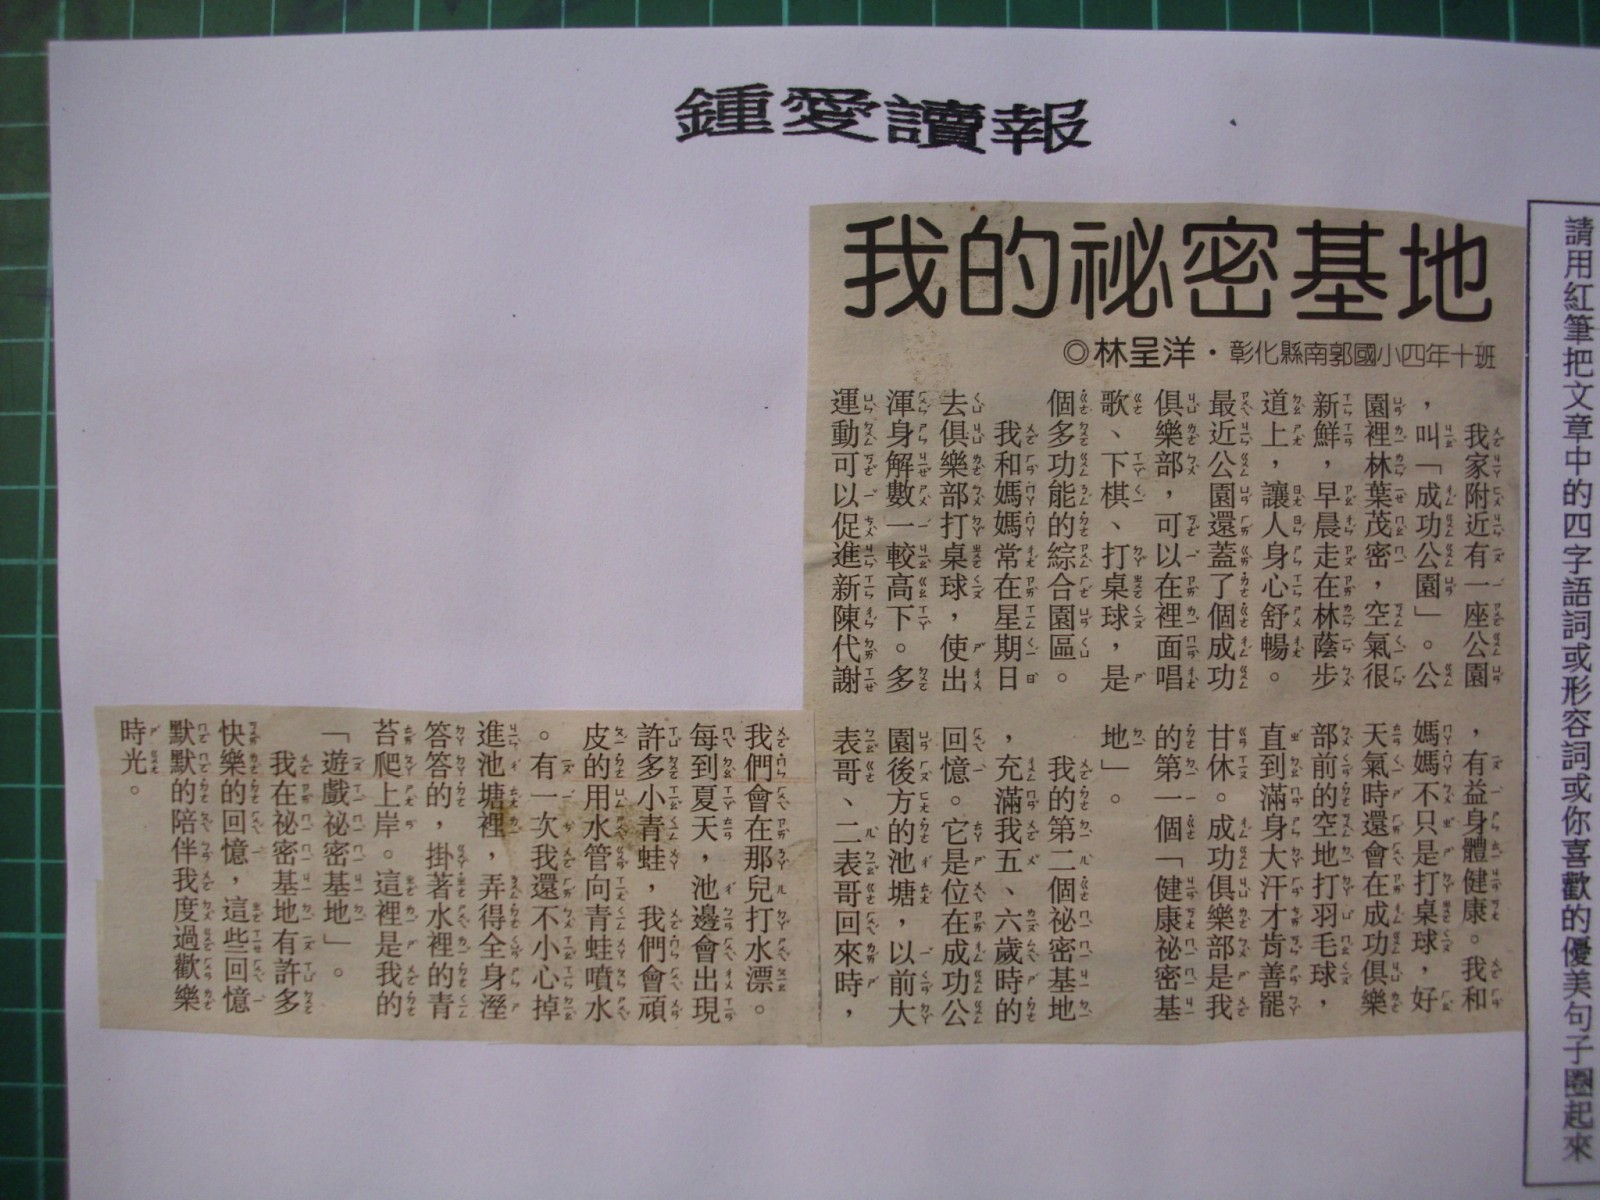 鍾愛讀報
請用紅筆把文章中的四字語詞或形容詞或你喜歡的優美句子圈起來
我的祕密基地
◎林呈洋・彰化縣南郭國小四年十班
我家附近有一座公園
，叫「成功公園」。公
園裡林葉茂密，空氣很
新鮮，早晨走在林蔭步
道上，讓人身心舒暢。
最近公園還蓋了個成功
俱樂部，可以在裡面唱
歌、下棋、打桌球，是
個多功能的綜合園區。
我和媽媽常在星期日
去俱樂部打桌球，使出
渾身解數一較高下。多
運動可以促進新陳代謝
，有益身體健康。我和
媽媽不只是打桌球，好
天氣時還會在成功俱樂
部前的空地打羽毛球，
直到滿身大汗才肯善罷
甘休。成功俱樂部是我
的第一個「健康祕密基
地」。
我的第二個祕密基地
，充滿我五、六歲時的
回憶。它是位在成功公
園後方的池塘，以前大
表哥、二表哥回來時，
我們會在那兒打水漂。
每到夏天，池邊會出現
許多小青蛙，我們會頑
皮的用水管向青蛙噴水
。有一次我還不小心掉
進池塘裡，弄得全身溼
答答的，掛著水裡的青
苔爬上岸。這裡是我的
「遊戲祕密基地」。
我在祕密基地有許多
快樂的回憶，這些回憶
默默的陪伴我度過歡樂
時光。